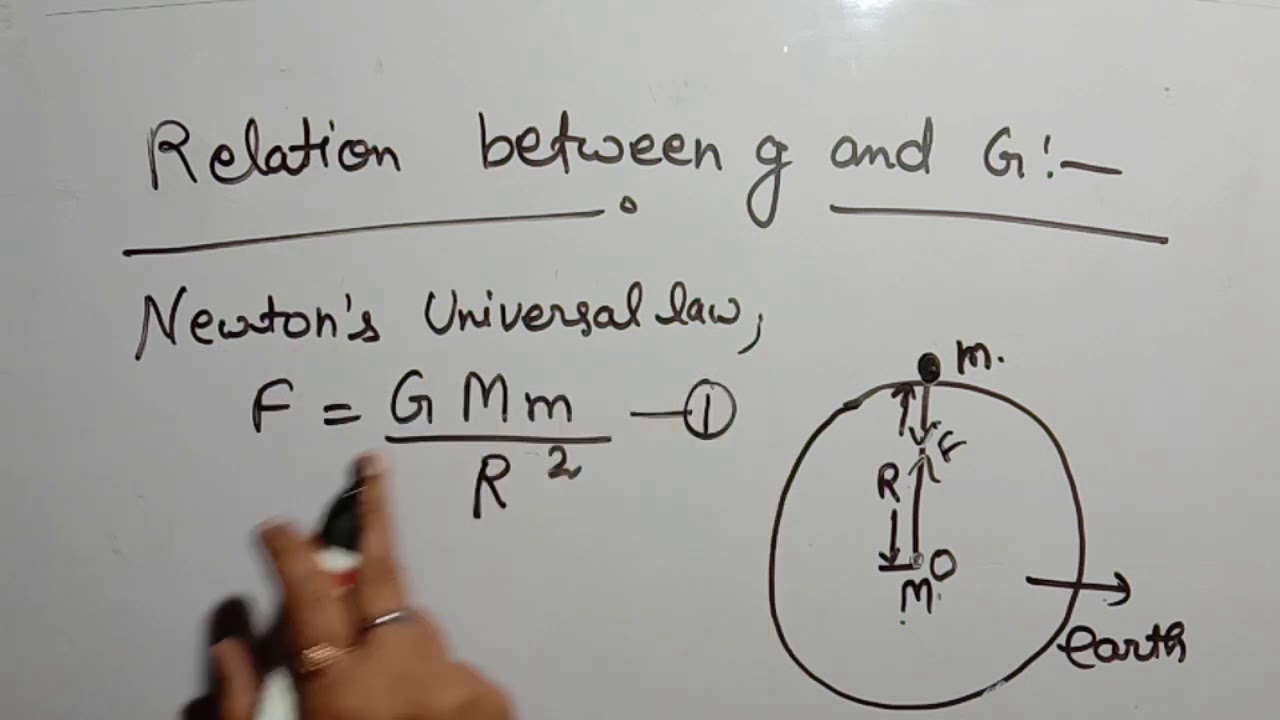 Relation between g and G:—
Newton's Universal law,
F = G M m / R² —①
m.
F
R
O
M.
earth